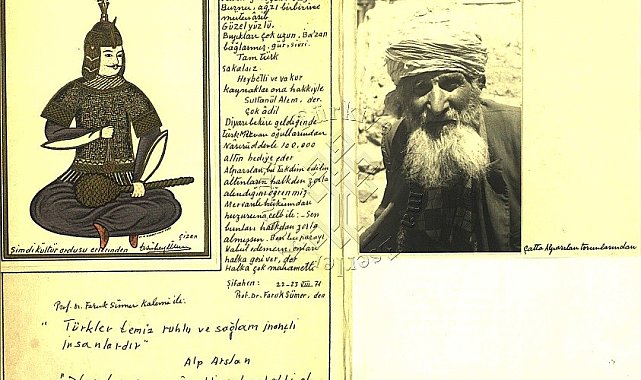 Burnu, ağzı birbirine
mütenasib
Güzel yüzlü.
Bıyıkları çok uzun, Ba'zan
bağlarmış, gür, sivri.
Tam türk
Sakalsız
Heybetli ve vakur
kaynaklar ona hakkiyle
Sultanül Alem, der.
Çok âdil
Diyarıbekire geldiğinde
Türk Mervan oğullarından
Nasrüddevle 100.000
altın hediye eder
Alparslan, bu takdim edilen
altınların halkdan zorla
alındığını öğrenmiş
Mervanlı hükümdarı
huzuruna celb ile: – Sen
bunları halkdan zorla
almışsın. Ben bu parayı
kabul edemem, onları
halka geri ver, der
Halka çok mahametli
Şifahen: 22-23 VIII. 71
Prof. Dr. Faruk Sümer, den
ÇİZEN
Şimdi kültür ordusu erlerinden
Çatta Alparslan torunlarından
Prof. Dr. Faruk Sümer Kalemi ile:
" Türkler temiz ruhlu ve sağlam inançlı
insanlardır"
Alp Arslan